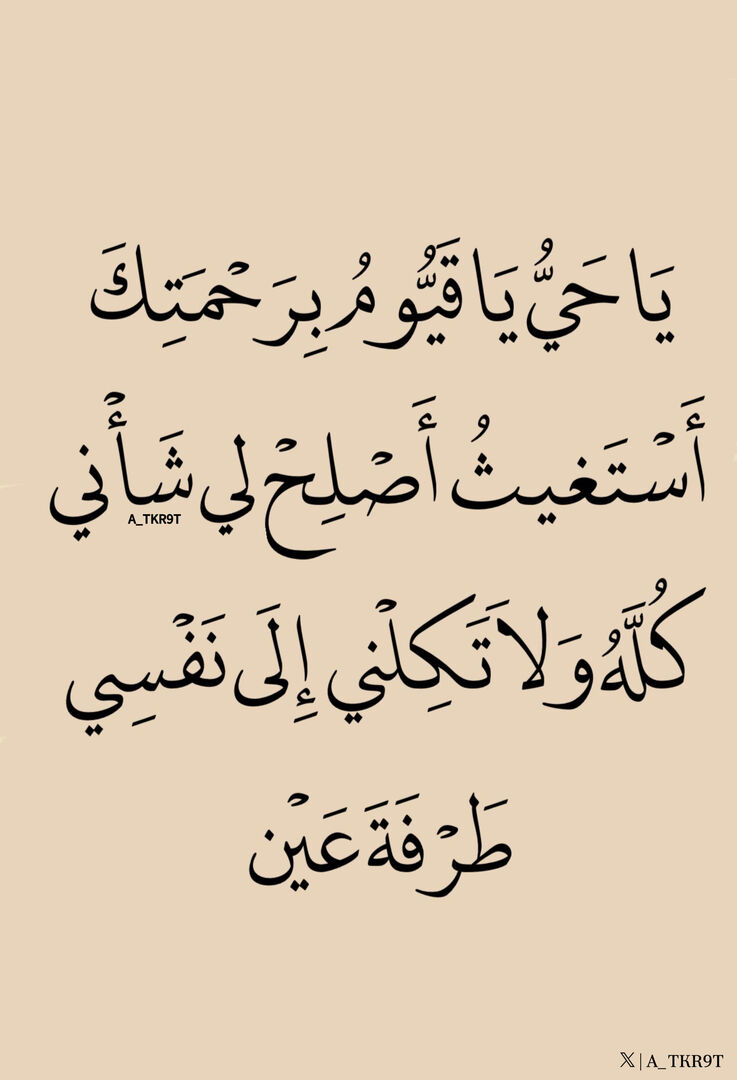 يَا حَيُّ يَا قَيُّومُ بِرَحْمَتِكَ
أَسْتَغيثُ أَصْلِحْ لي شَأْني
A_TKR9T
كُلَّهُ وَلاَ تَكِلْني إِلَى نَفْسِي
طَرْفَةَ عَيْن
𝕏 | A_TKR9T